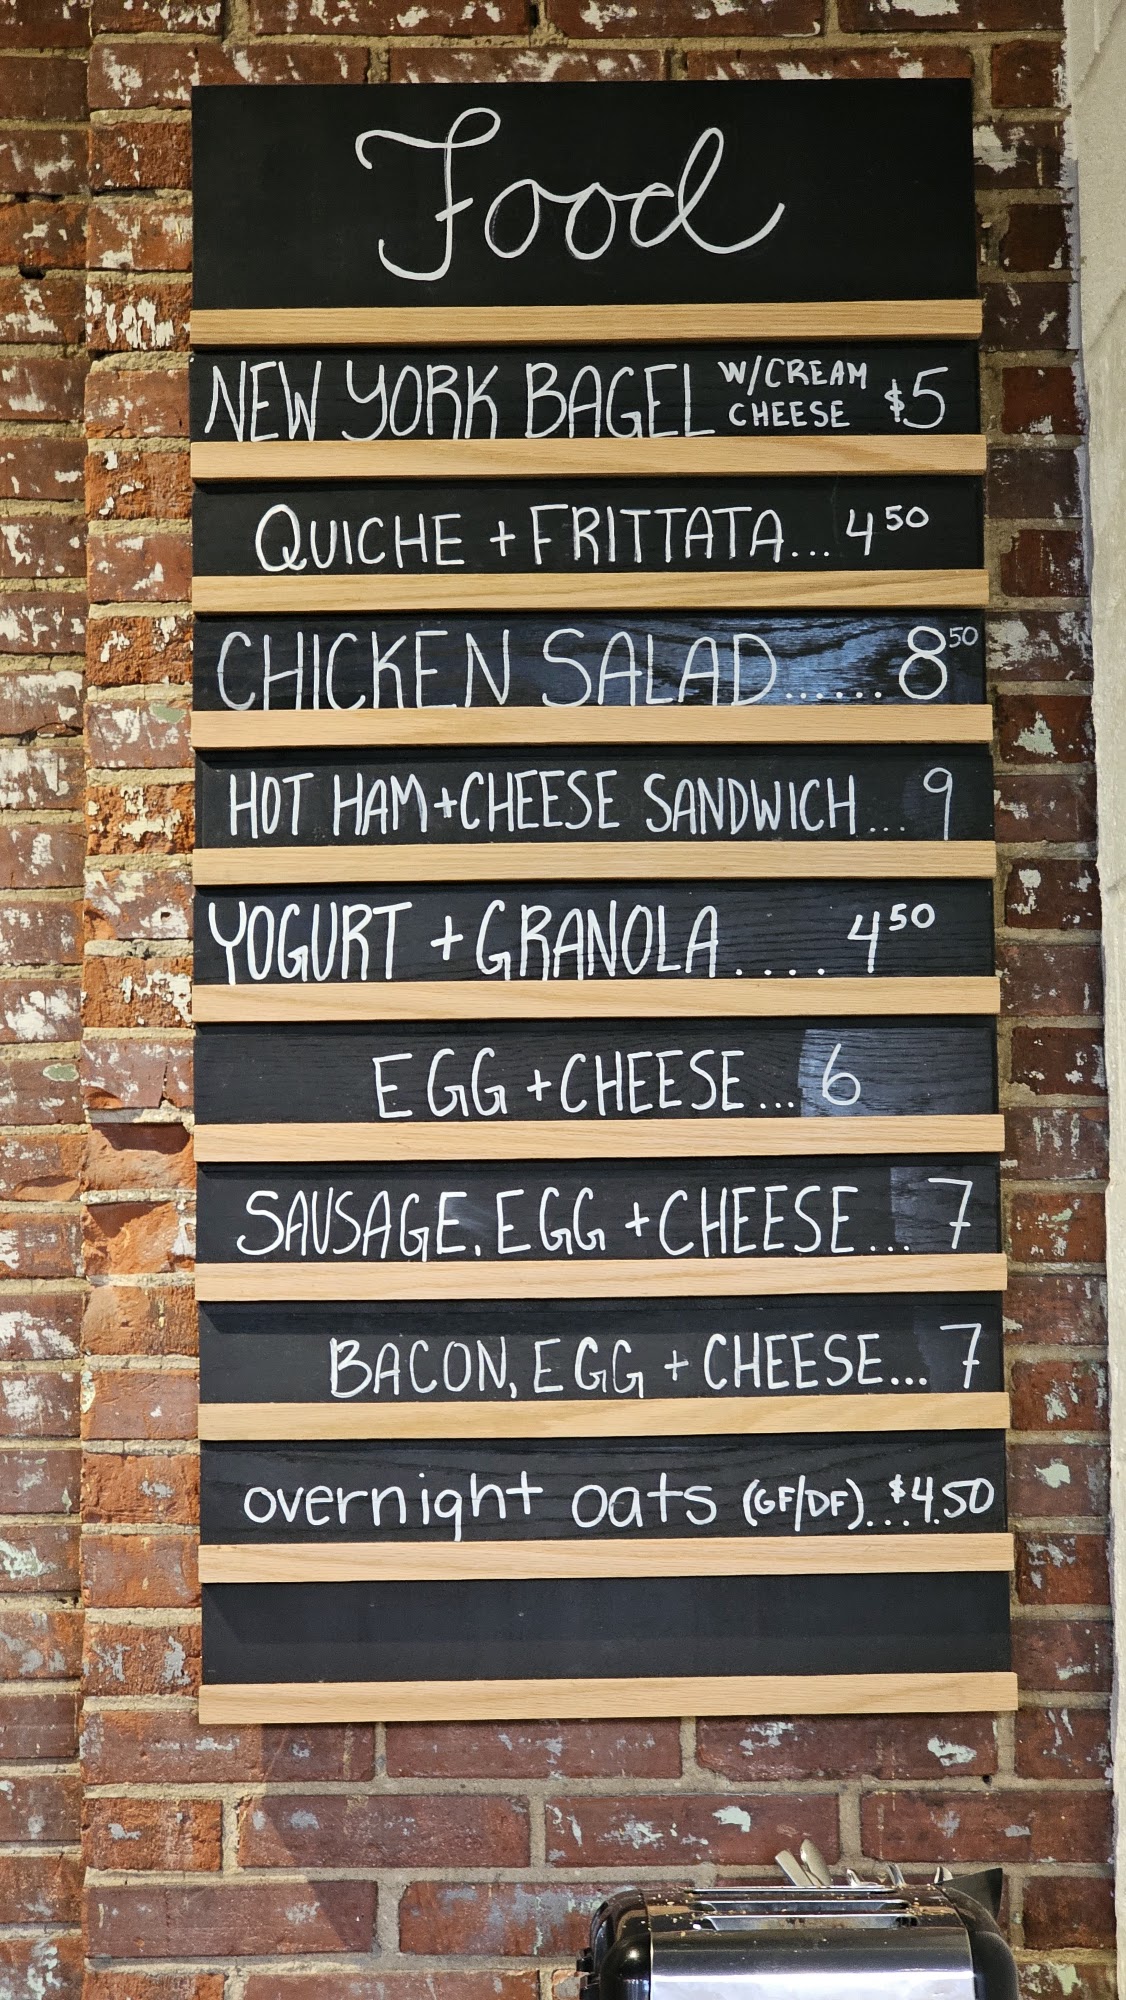 Food
NEW YORK BAGEL W/CREAM CHEESE $5
QUICHE + FRITTATA... 4 50
CHICKEN SALAD...... 8 50
HOT HAM+CHEESE SANDWICH... 9
YOGURT + GRANOLA..... 4 50
EGG + CHEESE... 6
SAUSAGE, EGG + CHEESE... 7
BACON, EGG + CHEESE... 7
overnight oats (GF/DF)... $4.50